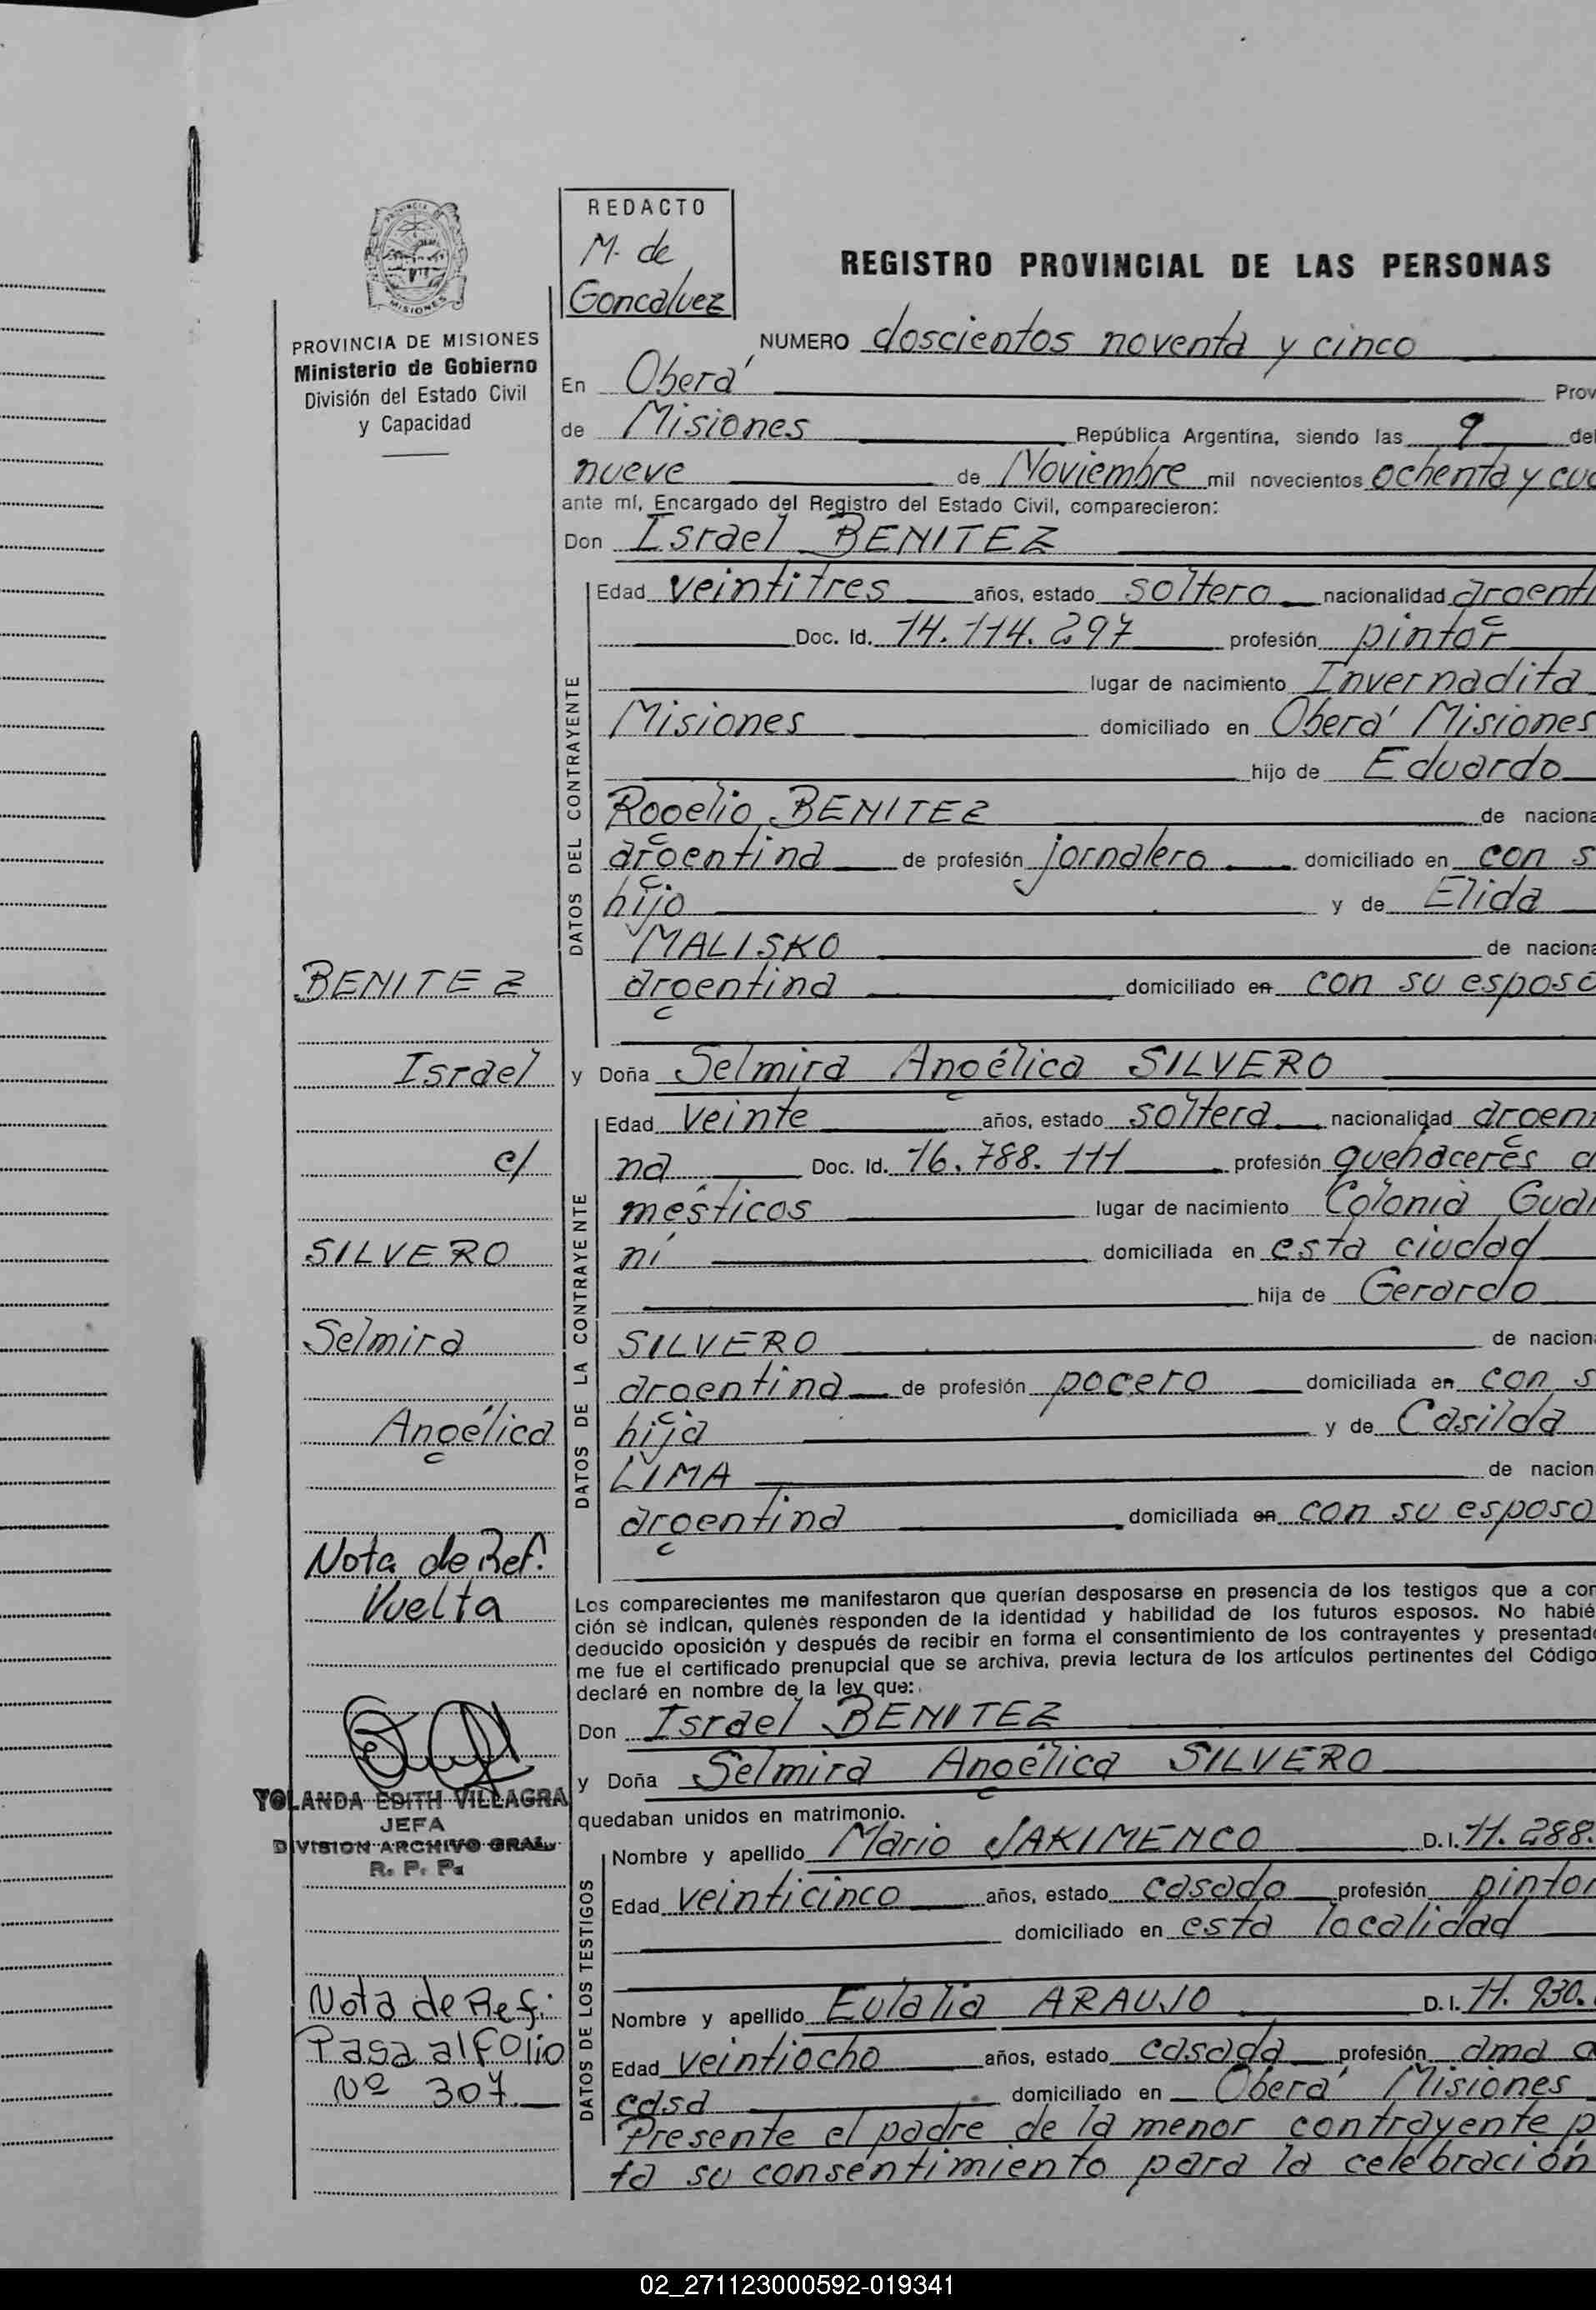 REDACTO
M. de
Goncalvez
PROVINCIA DE MISIONES
MISIONES
PROVINCIA DE MISIONES
Ministerio de Gobierno
División del Estado Civil
y Capacidad
REGISTRO PROVINCIAL DE LAS PERSONAS
NUMERO doscientos noventa y cinco
En Oberá Prov
de Misiones República Argentina, siendo las 9 del
nueve de Noviembre mil novecientos ochenta y cua
ante mí, Encargado del Registro del Estado Civil, comparecieron:
Don Israel BENITEZ
DATOS DEL CONTRAYENTE
Edad veintitres años, estado soltero nacionalidad argenti
Doc. Id. 14.114.297 profesión pintor
lugar de nacimiento Invernadita
Misiones domiciliado en Oberá Misiones
hijo de Eduardo
Rogelio BENITEZ de naciona
argentina de profesión jornalero domiciliado en con s
hijo y de Elida
MALISKO de naciona
argentina domiciliado en con su esposo
y Doña Selmira Angélica SILVERO
DATOS DE LA CONTRAYENTE
Edad veinte años, estado soltera nacionalidad argen
na Doc. Id. 16.788.111 profesión quehaceres d
mésticos lugar de nacimiento Colonia Gua
ní domiciliada en esta ciudad
hija de Gerardo
SILVERO de nacion
argentina de profesión pocero domiciliada en con s
hija y de Casilda
LIMA de nacion
argentina domiciliada en con su esposo
Los comparecientes me manifestaron que querían desposarse en presencia de los testigos que a con
ción se indican, quienes responden de la identidad y habilidad de los futuros esposos. No habié
deducido oposición y después de recibir en forma el consentimiento de los contrayentes y presentado
me fue el certificado prenupcial que se archiva, previa lectura de los artículos pertinentes del Código
declaré en nombre de la ley que:
Don Israel BENITEZ
y Doña Selmira Angélica SILVERO
quedaban unidos en matrimonio.
DATOS DE LOS TESTIGOS
Nombre y apellido Mario JAKIMENCO D.I. 11.288.
Edad veinticinco años, estado casado profesión pintor
domiciliado en esta localidad
Nombre y apellido Eulalia ARAUJO D.I. 11.930.
Edad veintiocho años, estado casada profesión ama d
casa domiciliado en Oberá Misiones
Presente el padre de la menor contrayente p
ta su consentimiento para la celebración
BENITEZ
Israel
c/
SILVERO
Selmira
Angélica
Nota de Ref.
Vuelta
YOLANDA EDITH VILLAGRA
JEFA
DIVISION ARCHIVO GRAL.
R. P. P.
Nota de Ref:
Pasa al Folio
Nº 307.
02_271123000592-019341